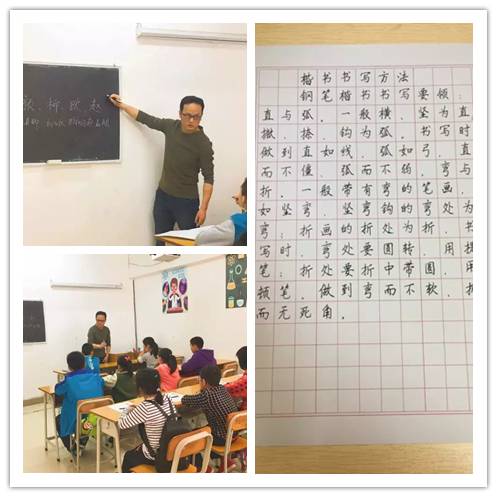 柳、欧、赵
楷书书写方法
钢笔楷书书写要领:
直与弧。一般横、竖为直
撇、捺、钩为弧。书写时
做到直如线,弧如弓,直
而不僵,弧而不弱。弯与
折。一般带有弯的笔画,
如竖弯、竖弯钩的弯处为
弯;折画的折处为折。书
写时,弯处要圆转,用提
笔;折处要折中带圆,用
顿笔。做到弯而不软,折
而无死角。